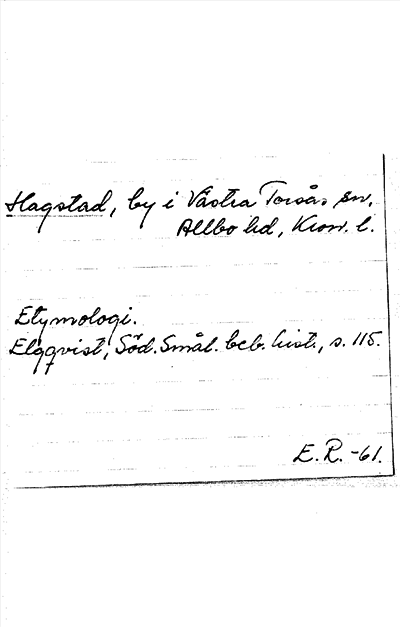 Hagstad, by i Västra Torsås sn,
Allbo hd, Kron. l.
Etymologi.
Elqqvist, Söd. Smål. beb. hist., s. 115.
E. R. -61.